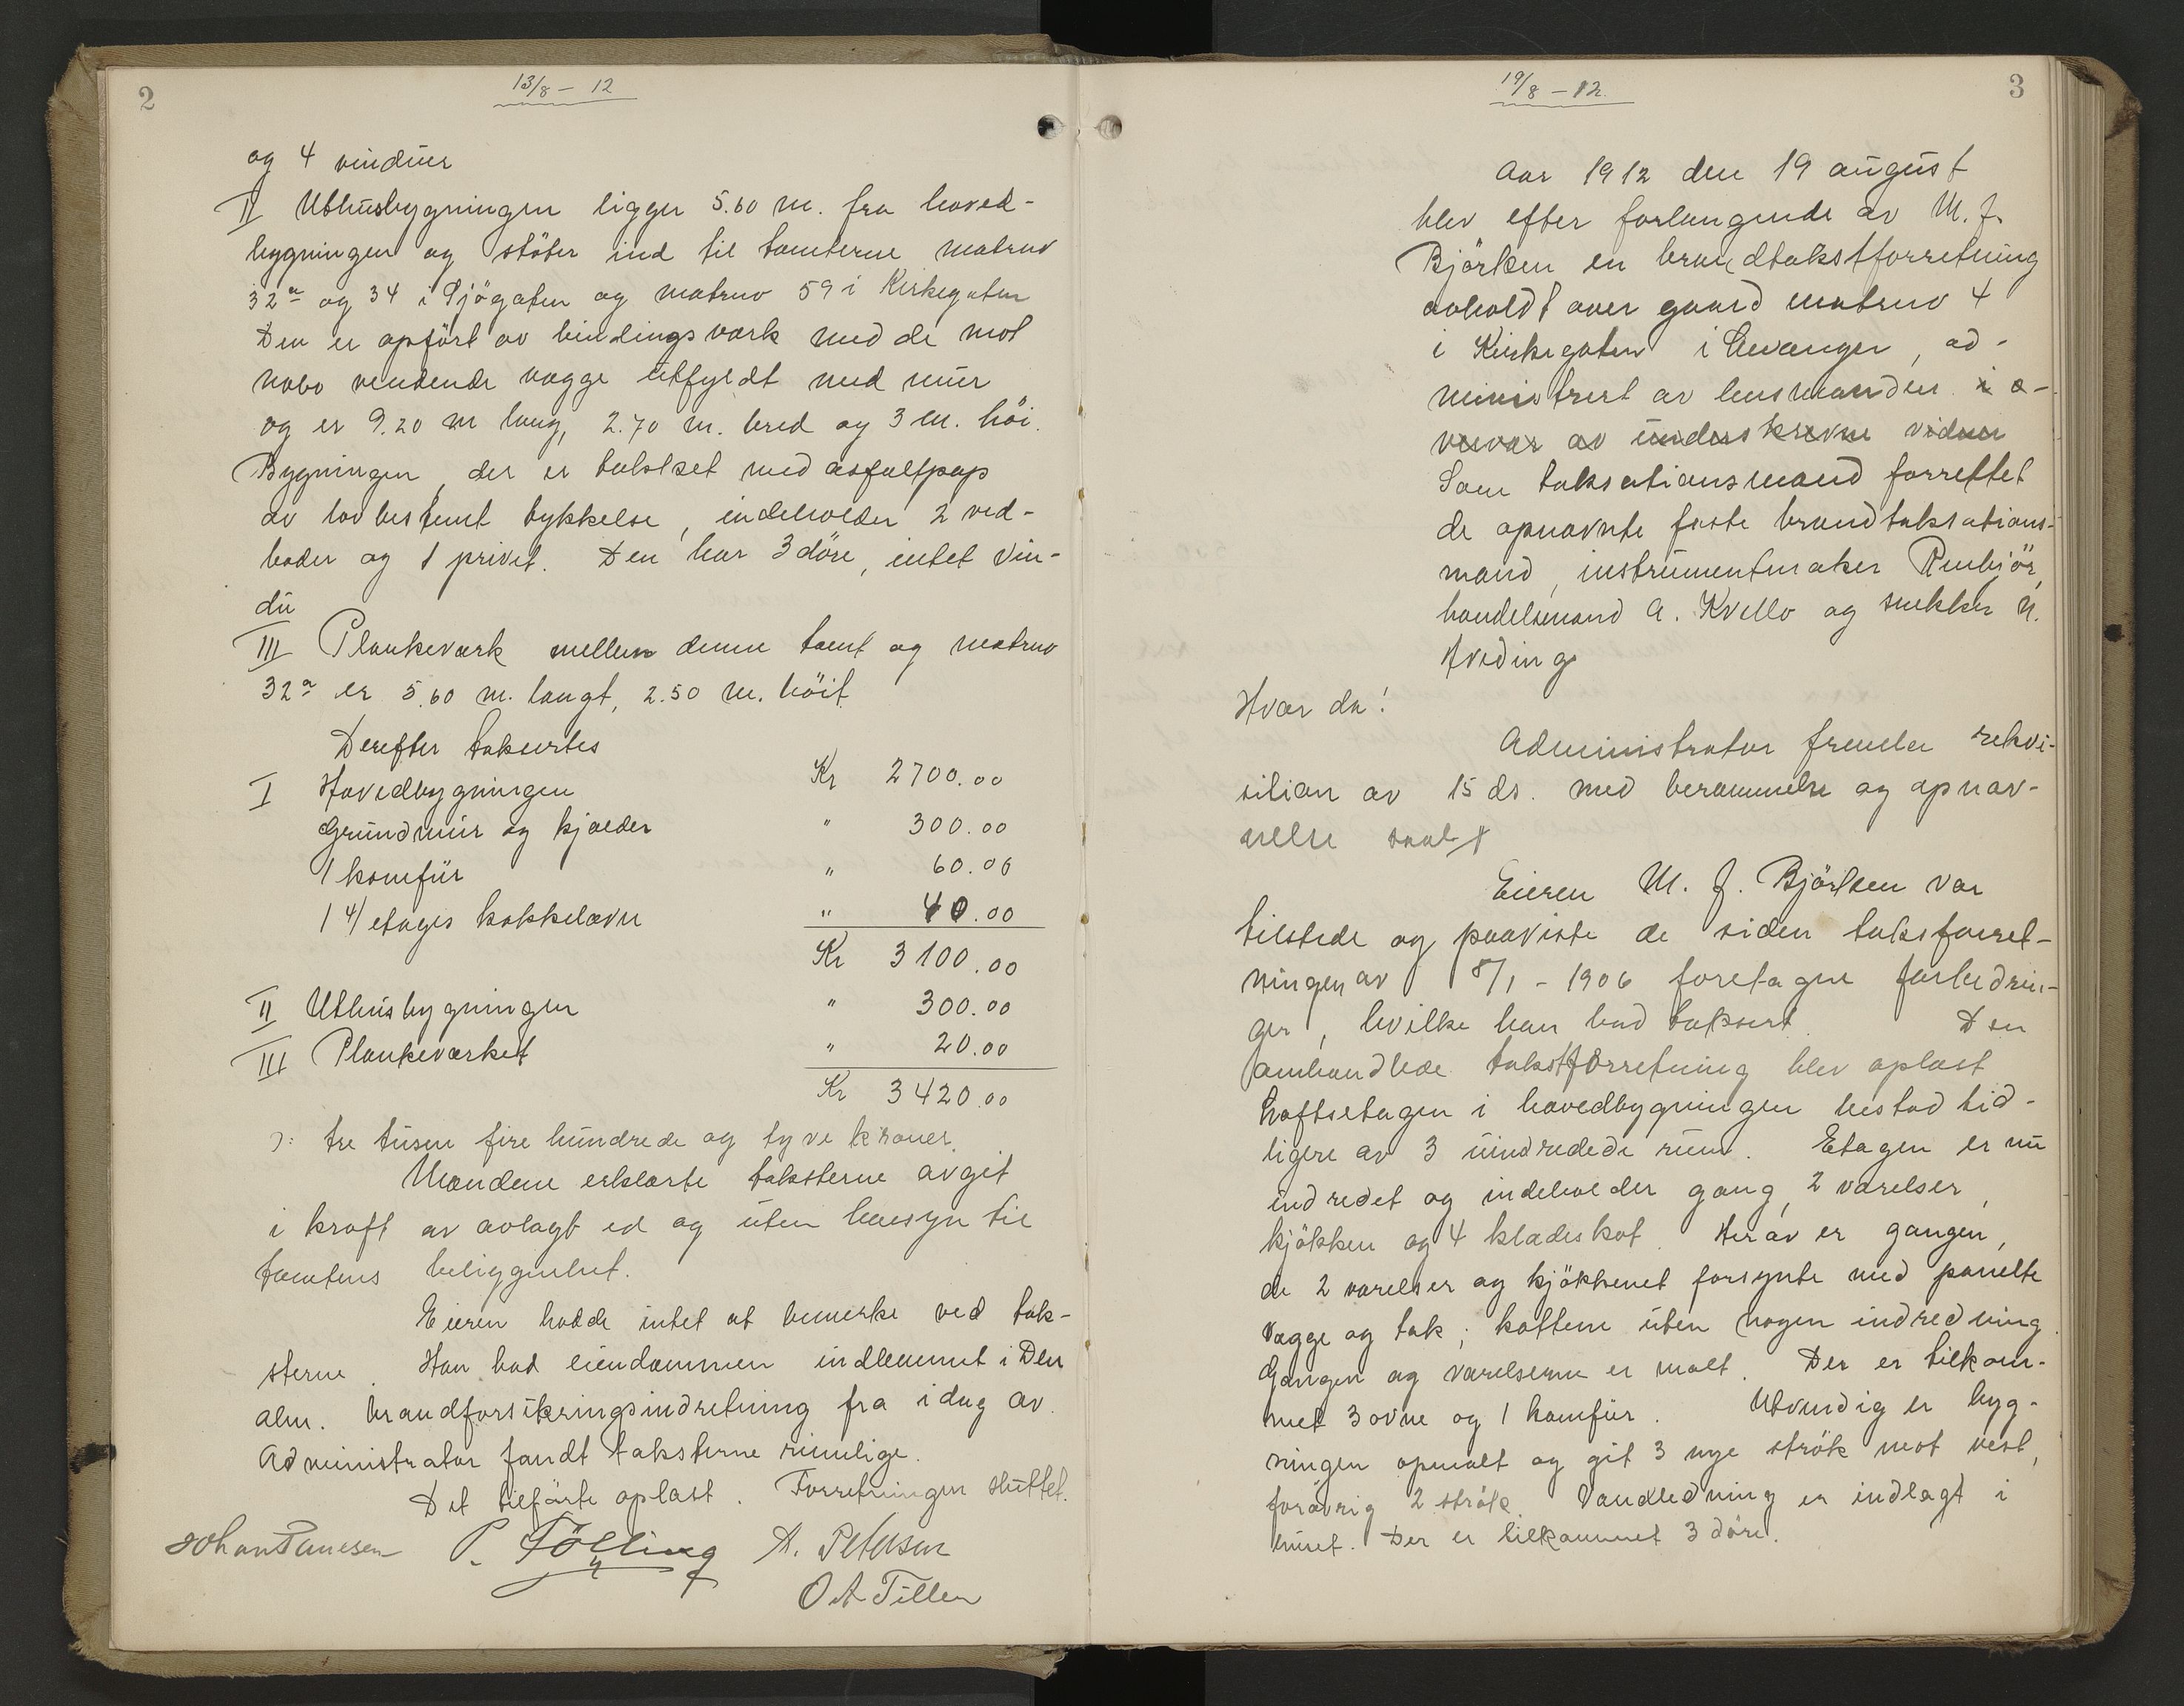 2
13/8 - 12
og 4 vinduer
II Uthusbygningen ligger 5.60 m. fra hoved-
bygningen og støter ind til tomterne matrno
32a og 34 i Sjögaten og matrno 59 i Kirkegaten
Den er opfört av bindingsverk med de mot
nabo vendende vægge utfyldt med mur
og er 9.20 m lang, 2.70 m. bred og 3 m. höi.
Bygningen, der er taktækket med asfaltpap
av lovbestemt tykkelse, indeholder 2 ved-
boder og 1 privet. Den har 3 döre, intet vin-
du
III Plankeværk mellem denne tomt og matrno
32a er 5.60 m. langt, 2.50 m. höit
Derefter taksertes
I Hovedbygningen Kr 2700.00
Grundmur og kjælder " 300.00
1 komfür " 60.00
1 4/ etages kakkelovn " 40.00
Kr 3100.00
II Uthusbygningen " 300.00
III Plankeværket " 20.00
Kr 3420.00
ɔ: tre tusen fire hundrede og tyve kroner.
Mændene erklærte taksterne avgit
i kraft av avlagt ed og uten hensyn til
tomtens beliggenhet.
Eieren hadde intet at bemerke ved tak-
sterne. Han bad eiendommen indlemmet i Den
alm. brandforsikringsindretning fra idag av.
Administrator fandt taksterne rimelige.
Det tilförte oplæst. Forretningen sluttet.
Johan Paulsen P. Fölling A. Petersen
O A Tiller
19/8 - 12.
3
Aar 1912 den 19 august
blev efter forlangende av M. J.
Björken en brandtakstforretning
avholdt over gaard matrno 4
i Kirkegaten i Levanger, ad-
ministrert av lensmanden i o-
vervær av underskrevne vidner
Som taksationsmænd forrettet
de opnævnte faste brandtaksations-
mænd, instrumentmaker Renbjör,
handelsmand A. Kvello og snekker N.
Aveding
Hvor da!
Administrator fremla rekvi-
sition av 15 ds. med berammelse og opnæv-
nelse saalt
Eieren M. J. Björken var
tilstede og paaviste de siden takstforret-
ningen av 8/1 - 1906 foretagne forbedrin-
ger, hvilke han bad taksert. Den
omhandlede takstforretning blev oplæst
Loftsetagen i hovedbygningen bestod tid-
ligere av 3 uindredede rum. Etagen er nu
indredet og indeholder gang, 2 værelser,
kjökken og 4 klædeskot. Herav er gangen,
de 2 værelser og kjökkenet forsynte med panelte
vægge og tak; kottene uten nogen indredning.
Gangen og værelserne er malt. Der er tilkom-
met 3 ovne og 1 komfür. Utvendig er byg-
ningen opmalt og git 3 nye strök mot vest,
forövrig 2 strök. Vandledning er indlagt i
huset. Der er tilkommet 3 döre.